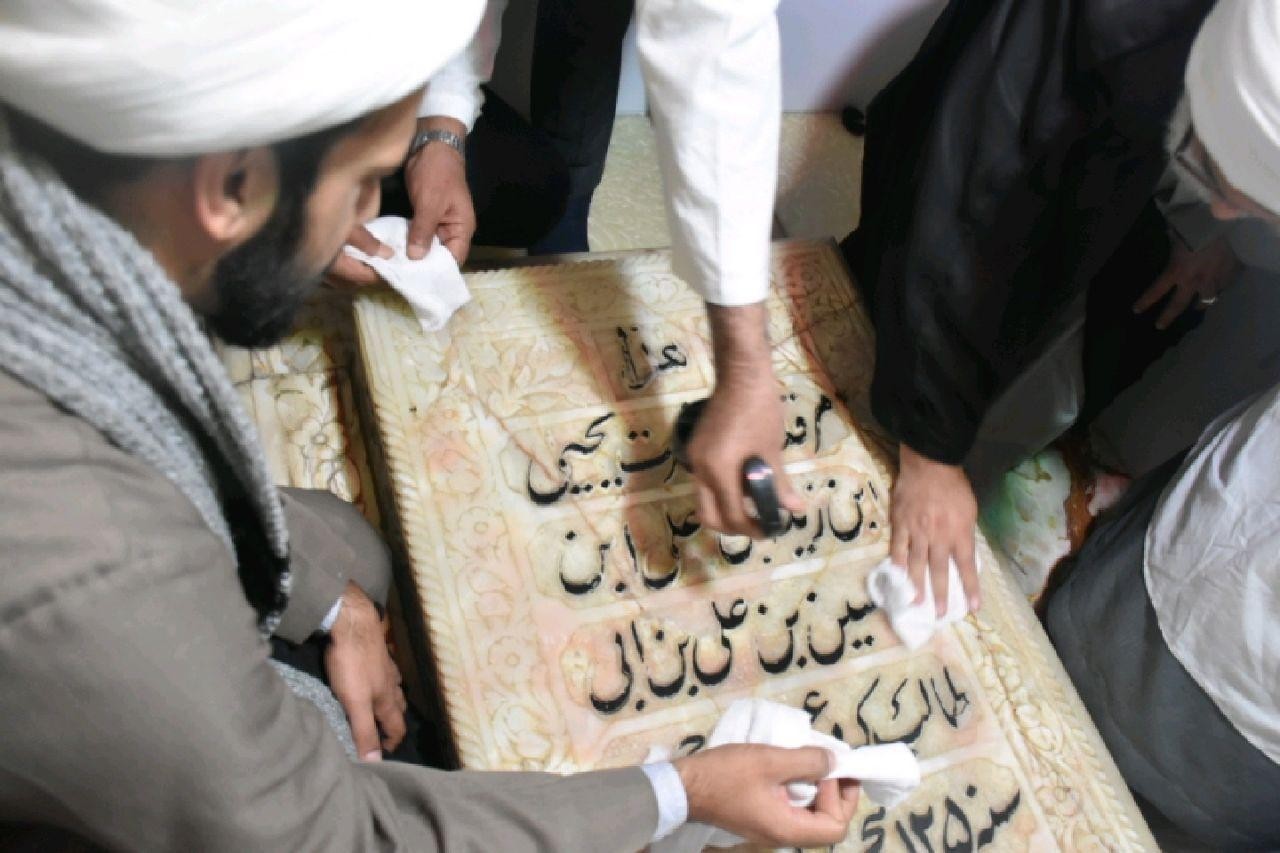 هذا
مرقد یحیی
ابن زید بن علی ابن
بن علی بن ابی
طالب
سنه ۱۲۵